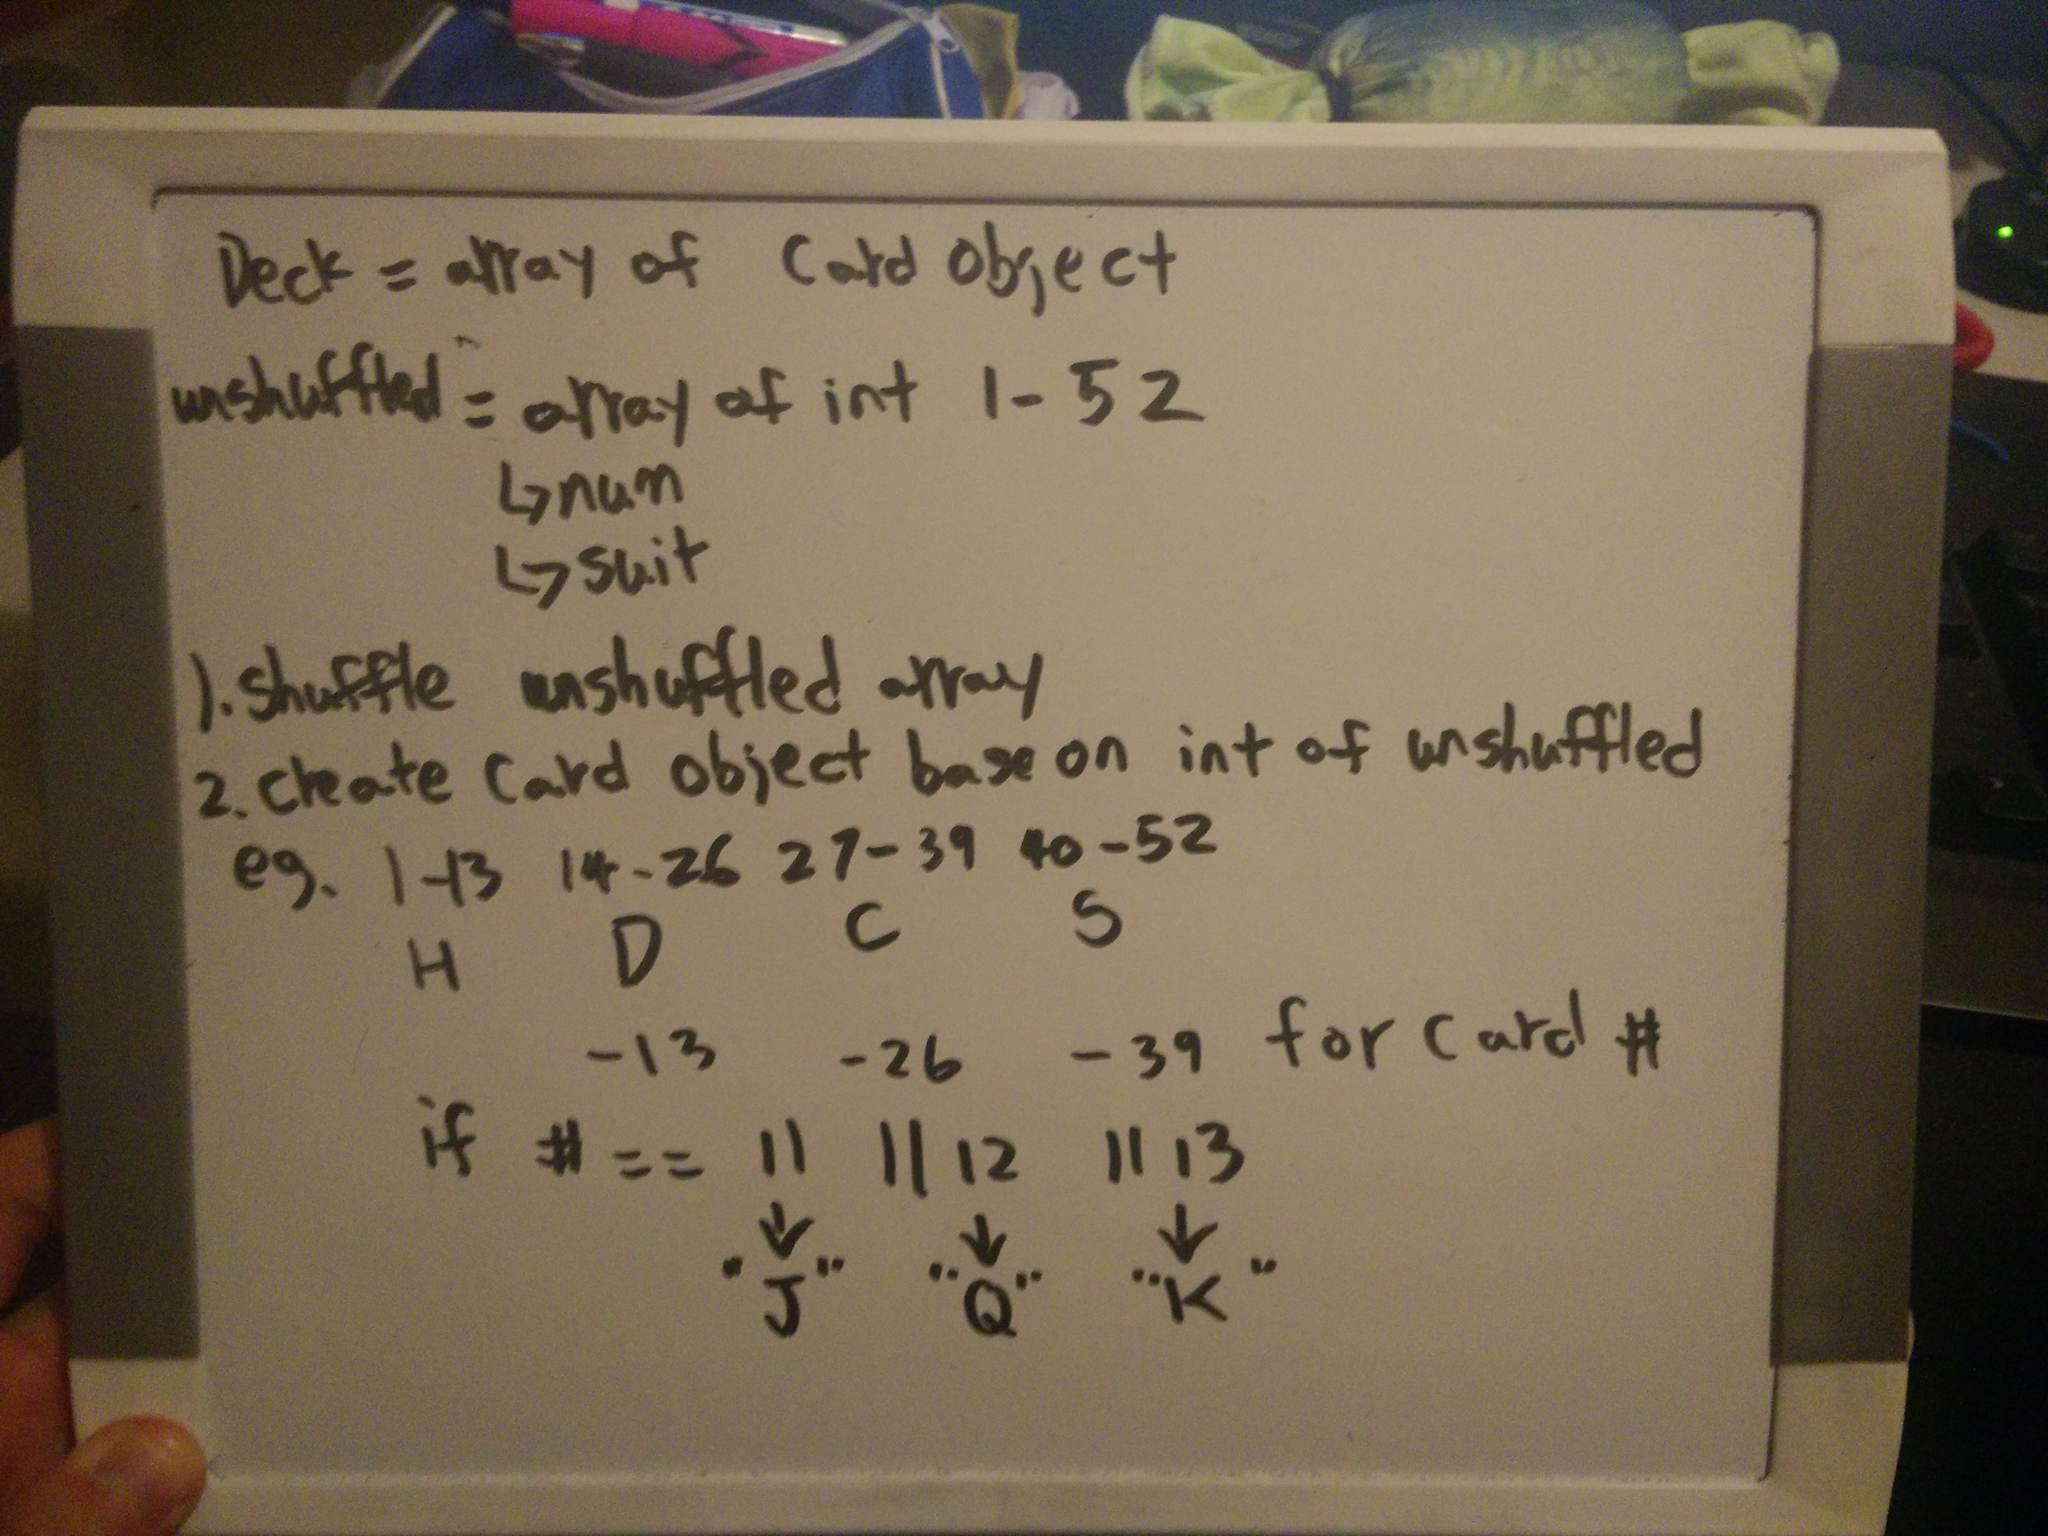 Deck = array of Card Object
unshuffled = array of int 1-52
↳ num
↳ suit
1. Shuffle unshuffled array
2. Create Card object base on int of unshuffled
eg. 1-13 14-26 27-39 40-52
H D C S
-13 -26 -39 for Card #
if # == 11 || 12 || 13
↓ ↓ ↓
"J" "Q" "K"